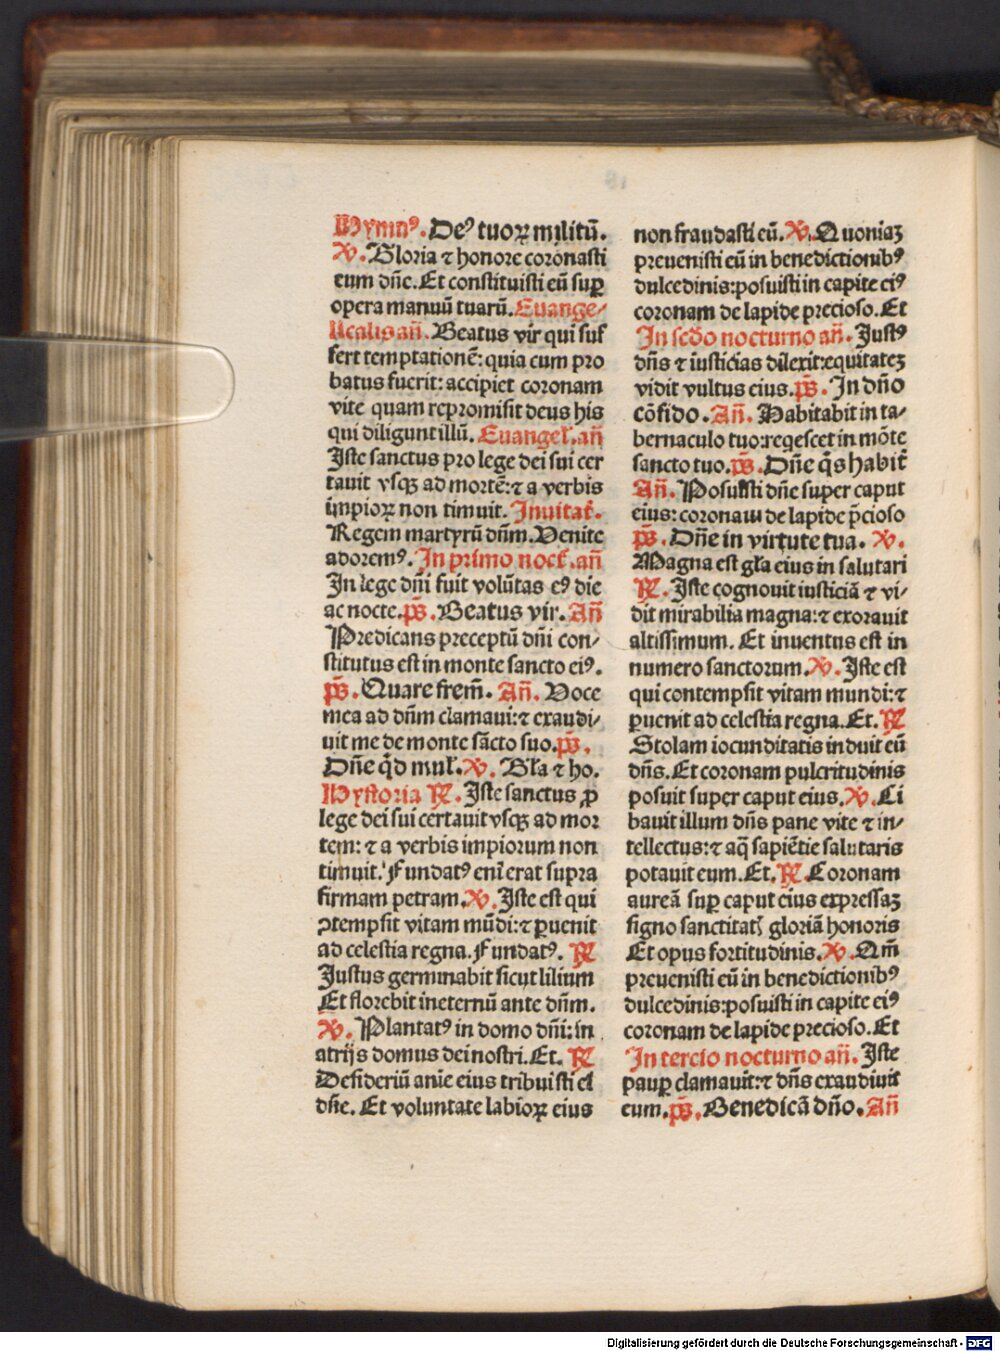 Hymnꝰ. Deꝰ tuoꝝ militū.
℣. Gloria ⁊ honore coronasti
eum dñe. Et constituisti eū suꝑ
opera manuū tuarū. Euange⸗
licalis añ. Beatus vir qui suf
fert temptationē: quia cum pro
batus fuerit: accipiet coronam
vite quam repromisit deus his
qui diligunt illū. Euangeł. añ
Iste sanctus pro lege dei sui cer
tauit vsqꝫ ad mortē: ⁊ a verbis
impioꝝ non timuit. Inuitat̄.
Regem martyrū dn̄m. Venite
adoremꝰ. In primo noct̄. añ
In lege dn̄i fuit volūtas eꝰ die
ac nocte. p̄s. Beatus vir. Añ
Predicans preceptū dn̄i con⸗
stitutus est in monte sancto eiꝰ.
p̄s. Quare frem̄. Añ. Voce
mea ad dn̄m clamaui: ⁊ exaudi⸗
uit me de monte sācto suo. p̄s.
Dn̄e q̄d mul̄. ℣. Gl̄a ⁊ ho.
Hystoria ℟. Iste sanctus ꝓ
lege dei sui certauit vsqꝫ ad mor
tem: ⁊ a verbis impiorum non
timuit. Fundatꝰ eni̅ erat supra
firmam petram. ℣. Iste est qui
ꝯtempsit vitam mūdi: ⁊ ꝑuenit
ad celestia regna. Fundatꝰ. ℟
Justus germinabit sicut lilium
Et florebit ineternū ante dn̄m.
℣. Plantatꝰ in domo dn̄i: in
atrijs domus dei nostri. Et. ℟
Desideriū anīe eius tribuisti ei
dn̄e. Et voluntate labioꝝ eius
non fraudasti eū. ℣. Quoniaꝫ
preuenisti eū in benedictionibꝰ
dulcedinis: posuisti in capite eiꝰ
coronam de lapide precioso. Et
In sc̄do nocturno añ. Justꝰ
dn̄s ⁊ iusticias dilexit: equitateꝫ
vidit vultus eius. p̄s. In dn̄o
cōfido. Añ. Habitabit in ta⸗
bernaculo tuo: reqescet in mōte
sancto tuo. p̄s. Dn̄e q̄s habit̄
Añ. Posuisti dn̄e super caput
eius: coronam de lapide p̄cioso
p̄s. Dn̄e in virtute tua. ℣.
Magna est gl̄a eius in salutari
℟. Iste cognouit iusticiā ⁊ vi⸗
dit mirabilia magna: ⁊ exorauit
altissimum. Et inuentus est in
numero sanctorum. ℣. Iste est
qui contempsit vitam mundi: ⁊
ꝑuenit ad celestia regna. Et. ℟
Stolam iocunditatis induit eū
dn̄s. Et coronam pulcritudinis
posuit super caput eius. ℣. Ci
bauit illum dn̄s pane vite ⁊ in⸗
tellectus: ⁊ aq̄ sapiētie salutaris
potauit eum. Et. ℟. Coronam
aureā suꝑ caput eius expressaꝫ
signo sanctitatꝭ gloriā honoris
Et opus fortitudinis. ℣. Qm̄
preuenisti eū in benedictionibꝰ
dulcedinis: posuisti in capite eiꝰ
coronam de lapide precioso. Et
In tercio nocturno añ. Iste
pauꝑ clamauit: ⁊ dn̄s exaudiuit
eum. p̄s. Benedicā dn̄o. Añ
Digitalisierung gefördert durch die Deutsche Forschungsgemeinschaft - DFG